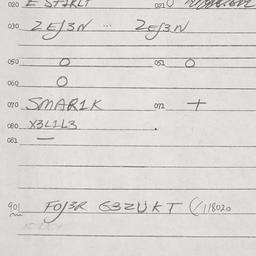 020 E STARKLT 021
030 ZEJ3N ... ZEJ3N
050 O 051 O
060 O
070 SMAR1K 071 +
080 X3L1L3
081 —
901 FOJ3R G3ZUKT (/118020